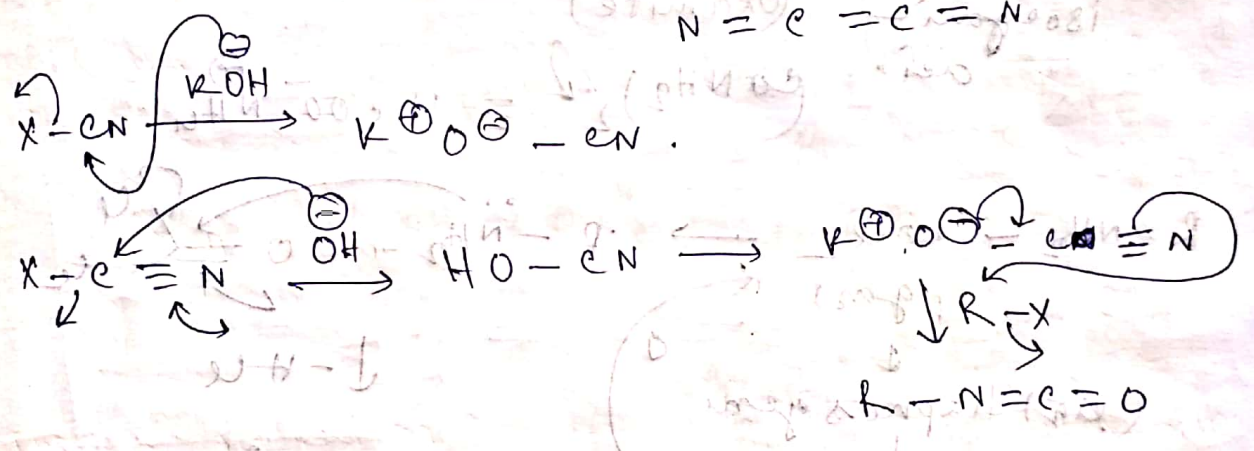 N = C = C = N
⊖
KOH
X - CN → K⊕ O⊖ - CN .
⊖
X - C ≡ N OH → HO - CN → K⊕ . O⊖ - C ≡ N
↓ R - X
R - N = C = O